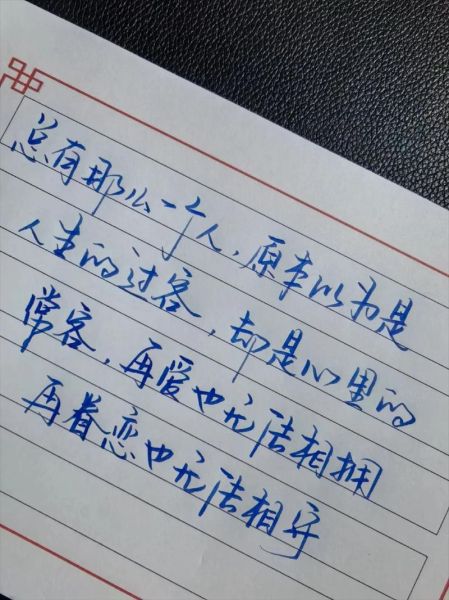 总有那么一个人，原本以为是
人生的过客，却是心里的
常客，再爱也无法相拥
再眷恋也无法相守